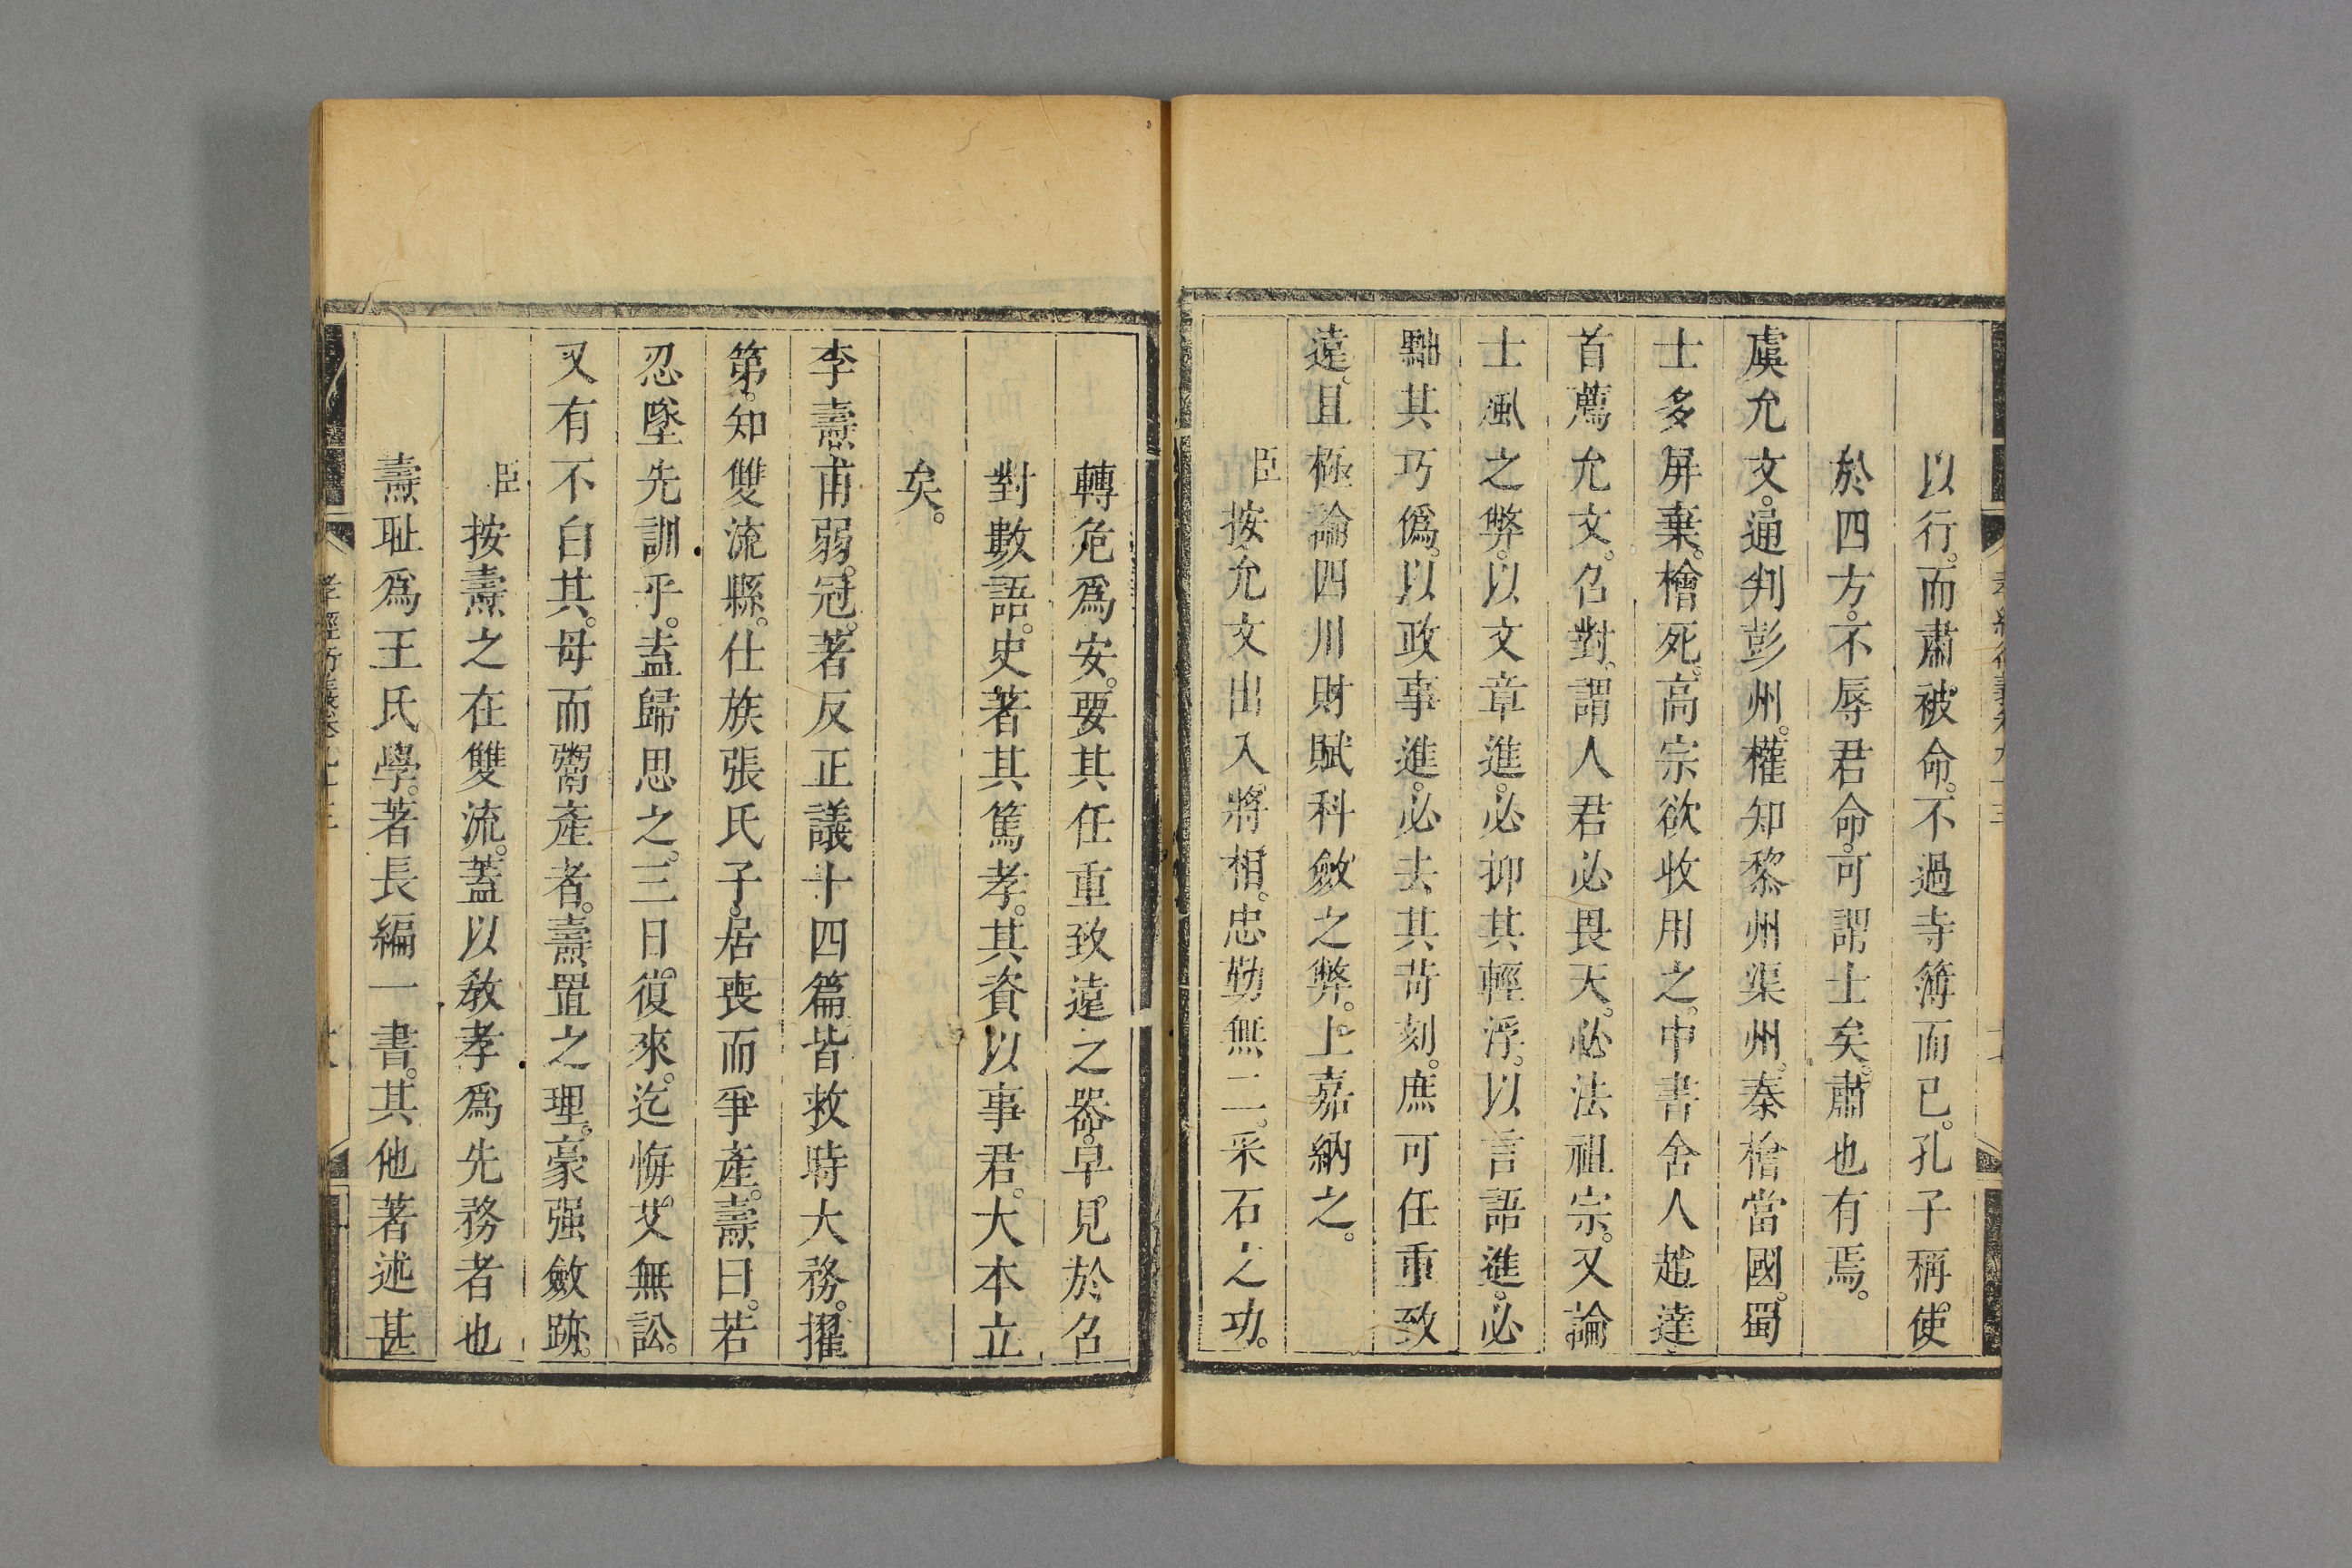 以行。而肅被命。不過寺簿而已。孔子稱。使
於四方。不辱君命。可謂士矣。肅也有焉。
虞允文。通判彭州。權知黎州渠州。秦檜當國。蜀
士多屏棄。檜死。高宗欲收用之。中書舍人趙逵
首薦允文。召對。謂人君必畏天。必法祖宗。又論
士風之弊。以文章進。必抑其輕浮。以言語進。必
黜其巧僞。以政事進。必去其苛刻。庶可任重致
遠。且極論四川財賦科斂之弊。上嘉納之。
臣按允文出入將相。忠勤無二。采石之功。
轉危爲安。要其任重致遠之器。早見於召
對數語。史著其篤孝。其資以事君。大本立
矣。
李燾甫弱冠。著反正議十四篇。皆救時大務。擢
第。知雙流縣。仕族張氏子。居喪而爭產。燾曰。若
忍墜先訓乎。盍歸思之。三日復來。迄悔艾無訟。
又有不白其母而鬻產者。燾置之理。豪强斂跡。
臣按燾之在雙流。蓋以敎孝爲先務者也
燾耻爲王氏學。著長編一書。其他著述甚
孝經衍義卷九十三